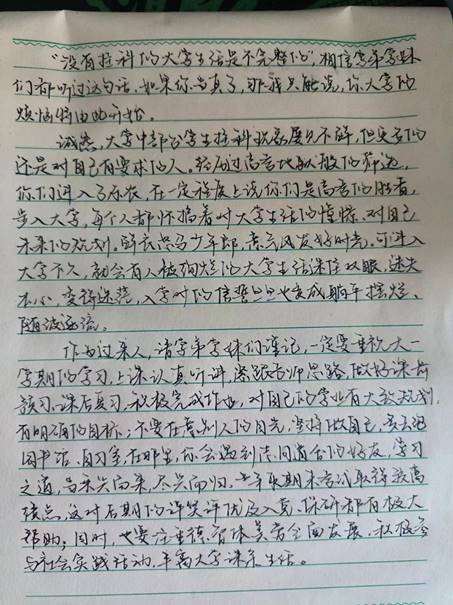 “没有挂科的大学生活是不完整的”相信学弟学妹
们都听过这句话,如果你当真了,那我只能说,你大学的
烦恼将由此开始。
诚然,大学中部分学生挂科现象屡见不鲜,但更多的
还是对自己有要求的人。经历过高考地狱般的筛选,
你们进入了原农,在一定程度上说你们是高考的胜者,
步入大学,每个人都怀揣着对大学生活的憧憬、对自己
未来的规划。鲜衣怒马少年郎,意气风发好时光。可进入
大学不久,就会有人被绚烂的大学生活迷住双眼,迷失
本心,变得迷茫,入学时的信誓旦旦也变成躺平摆烂、
随波逐流。
作为过来人,请学弟学妹们谨记,一定要重视大一
学期的学习,上课认真听讲,紧跟老师思路,做好课前
预习、课后复习,积极完成作业,对自己的学业有大致规划,
有明确的目标;不要在意别人的目光,坚持做自己,多去泡
图书馆、自习室,在那里,你会遇到志同道合的好友,学习
之道,乌来兴而来,尽兴而归。大一年级期末考试取得较高
绩点,这对后期的评奖评优及入党、保研都有极大
帮助;同时,也要注重德智体美劳全面发展,积极参
与社会实践活动,丰富大学课余生活。